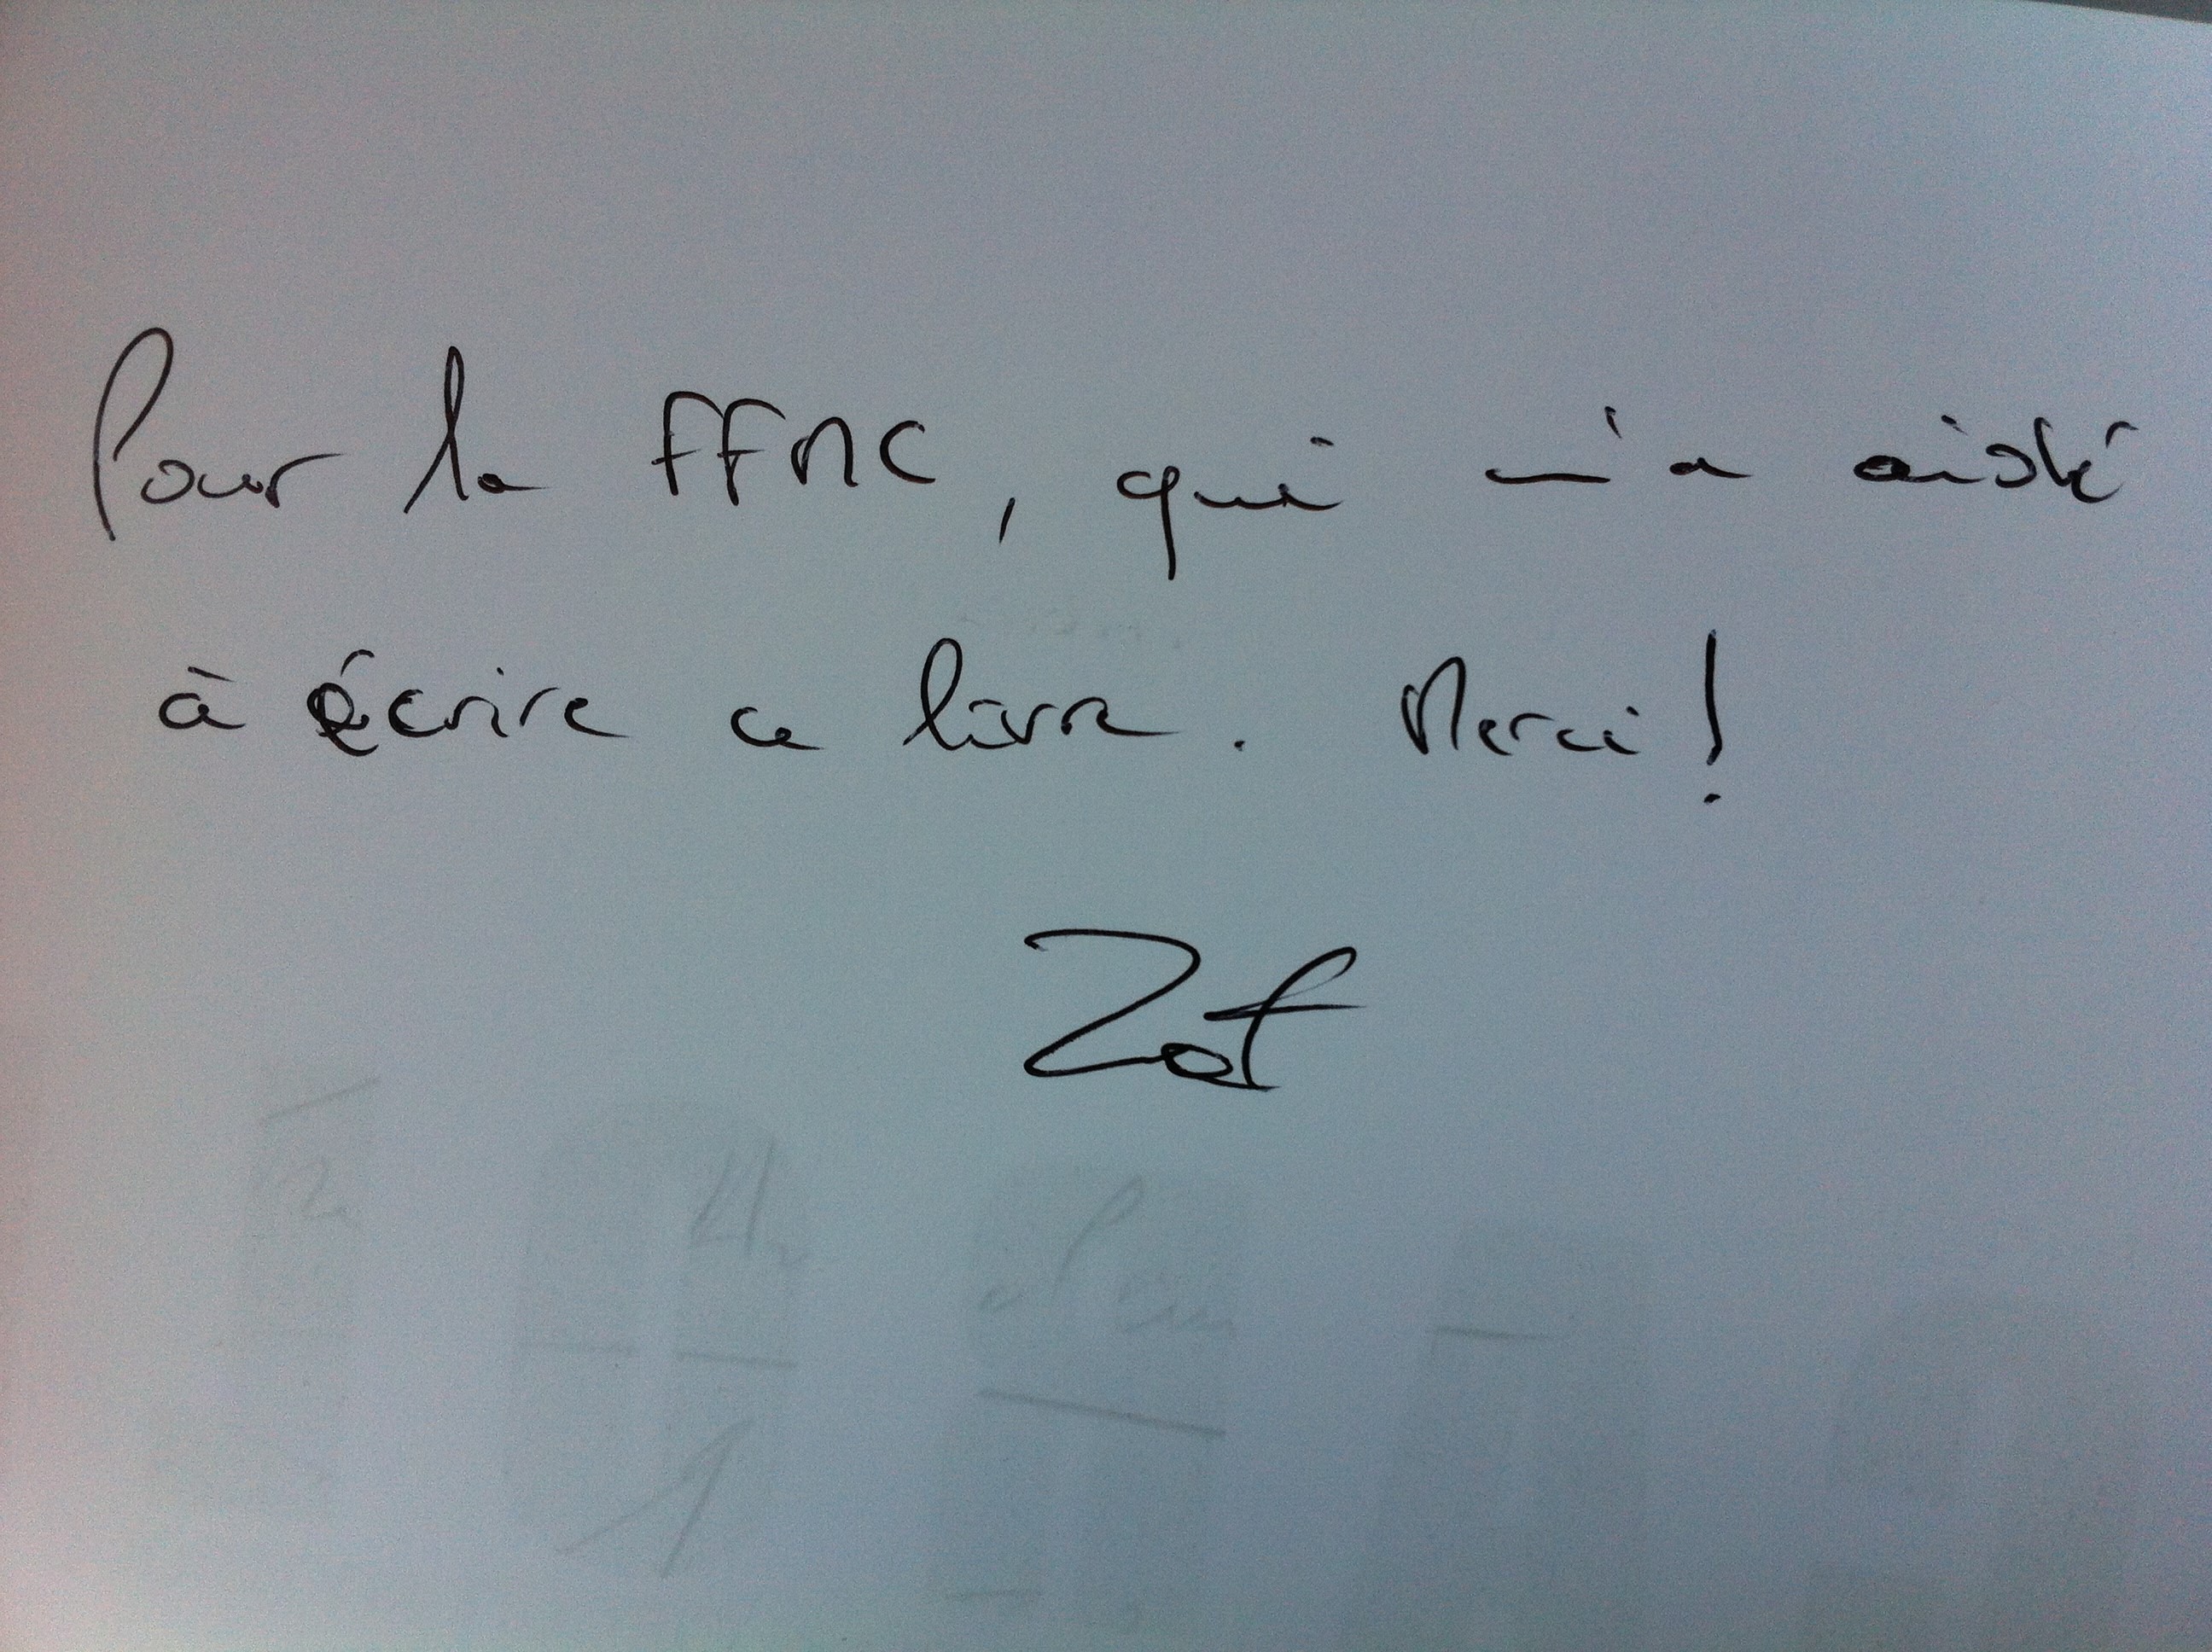 Pour la FFMC, qui m'a aidé
à écrire ce livre. Merci!
Zef